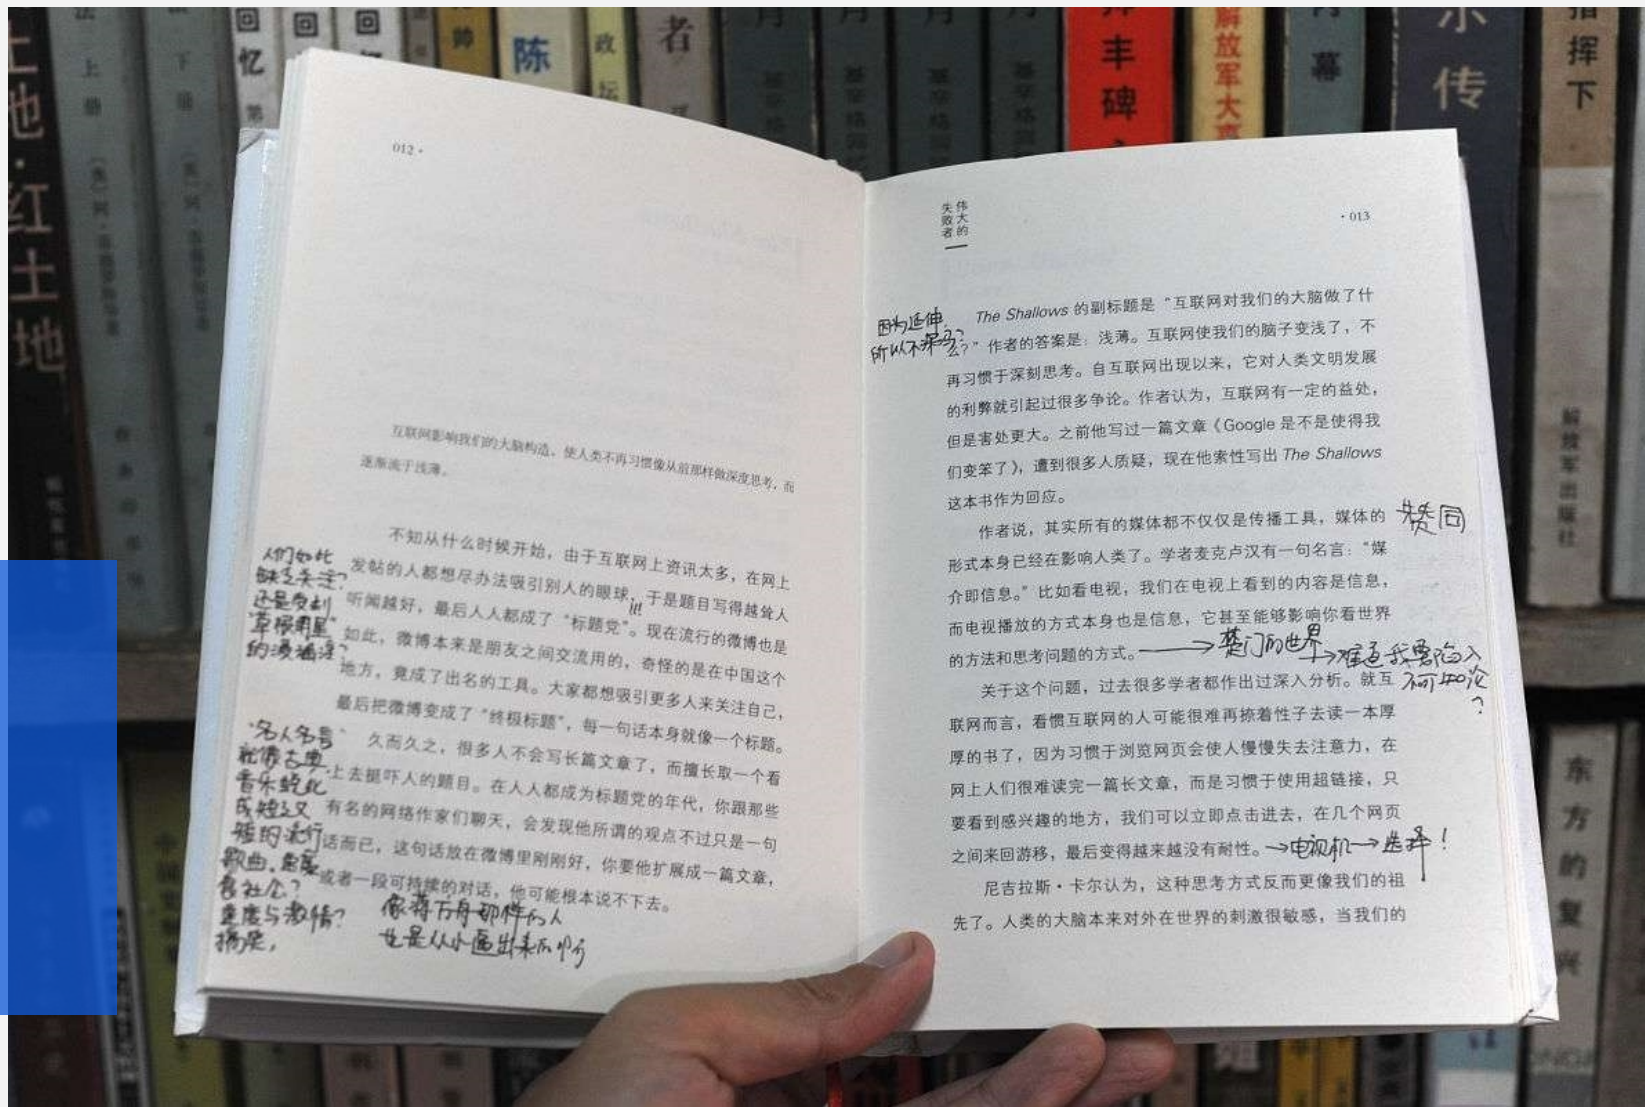 土地·红土地
上册
下册
回忆
陈
政坛
者
基辛格
丰碑
解放军大事
内幕
小传
指挥下
解放军出版社
东方的复兴
012·
互联网影响我们的大脑构造,使人类不再习惯像从前那样做深度思考,而
逐渐流于浅薄。
不知从什么时候开始,由于互联网上资讯太多,在网上
发帖的人都想尽办法吸引别人的眼球,于是题目写得越耸人
听闻越好,最后人人都成了“标题党”。现在流行的微博也是
如此,微博本来是朋友之间交流用的,奇怪的是在中国这个
地方,竟成了出名的工具。大家都想吸引更多人来关注自己,
最后把微博变成了“终极标题”,每一句话本身就像一个标题。
久而久之,很多人不会写长篇文章了,而擅长取一个看
上去挺吓人的题目。在人人都成为标题党的年代,你跟那些
有名的网络作家们聊天,会发现他所谓的观点不过只是一句
话而已,这句话放在微博里刚刚好,你要他扩展成一篇文章,
或者一段可持续的对话,他可能根本说不下去。
人们如此
缺乏关注?
还是受到
“草根明星”
的
“名人名号”
就像古典
音乐蜕化
成短之又
短的流行
歌曲,是
社会?
速度与激情?
搞笑。
像蒋方舟那样的人
也是从小逼出来的
伟大的
失败者
·013
The Shallows 的副标题是“互联网对我们的大脑做了什
么?”作者的答案是:浅薄。互联网使我们的脑子变浅了,不
再习惯于深刻思考。自互联网出现以来,它对人类文明发展
的利弊就引起过很多争论。作者认为,互联网有一定的益处,
但是害处更大。之前他写过一篇文章《Google 是不是使得我
们变笨了》,遭到很多人质疑,现在他索性写出 The Shallows
这本书作为回应。
作者说,其实所有的媒体都不仅仅是传播工具,媒体的
形式本身已经在影响人类了。学者麦克卢汉有一句名言:“媒
介即信息。”比如看电视,我们在电视上看到的内容是信息,
而电视播放的方式本身也是信息,它甚至能够影响你看世界
的方法和思考问题的方式。
关于这个问题,过去很多学者都作出过深入分析。就互
联网而言,看惯互联网的人可能很难再捺着性子去读一本厚
厚的书了,因为习惯于浏览网页会使人慢慢失去注意力,在
网上人们很难读完一篇长文章,而是习惯于使用超链接,只
要看到感兴趣的地方,我们可以立即点击进去,在几个网页
之间来回游移,最后变得越来越没有耐性。
尼吉拉斯·卡尔认为,这种思考方式反而更像我们的祖
先了。人类的大脑本来对外在世界的刺激很敏感,当我们的
因为延伸
所以不深吗?
赞同
→楚门的世界
→难道我要陷入
不可知论
?
→电视机→选择!